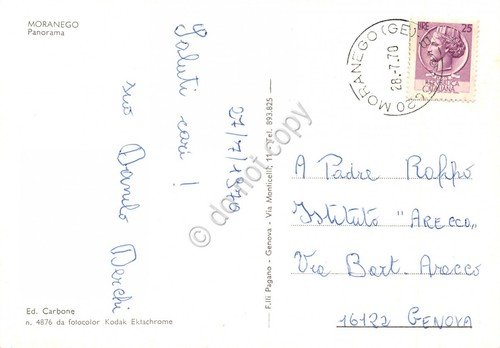 MORANEGO
Panorama
Saluti cari!
27/7/1970
suo Danilo Derchi
Ed. Carbone
n. 4876 da fotocolor Kodak Ektachrome
F.lli Pagano - Genova - Via Monticelli, 11 - Tel. 893.825
MORANEGO (GE)
28.7.70
LIRE 25
REPUBBLICA
ITALIANA
A Padre Rappo
Istituto "Arecco"
Via Bart. Arecco
16122 GENOVA
© delmot copy